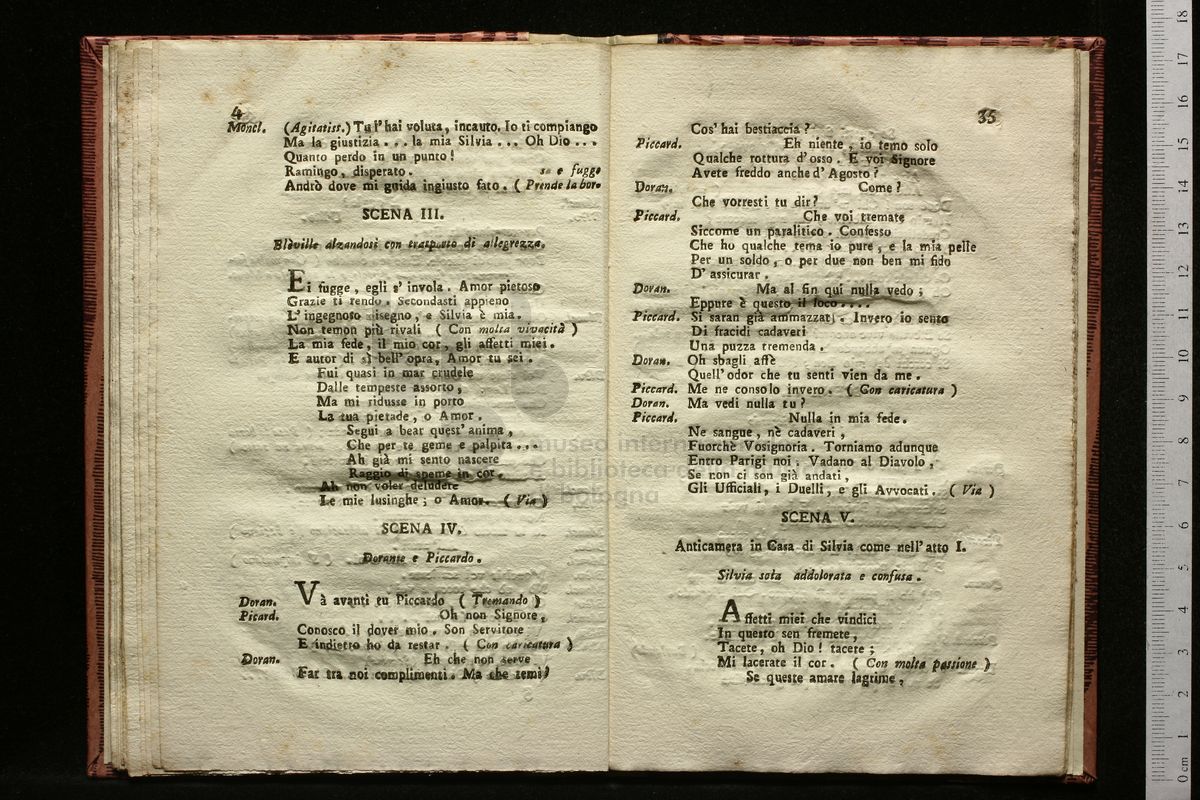 4
Moncl. (Agitatiss.) Tu l'hai voluta, incauto. Io ti compiango
Ma la giustizia ... la mia Silvia ... Oh Dio ...
Quanto perdo in un punto!
Ramingo, disperato. sa e fugge
Andrò dove mi guida ingiusto fato. ( Prende la bor-
SCENA III.
Blèville alzandosi con trasporto di allegrezza.
Ei fugge, egli s'invola. Amor pietoso
Grazie ti rendo. Secondasti appieno
L'ingegnoso disegno, e Silvia è mia.
Non temon più rivali ( Con molta vivacità )
La mia fede, il mio cor, gli affetti miei.
E autor di sì bell'opra, Amor tu sei.
Fui quasi in mar crudele
Dalle tempeste assorto,
Ma mi ridusse in porto
La tua pietade, o Amor.
Segui a bear quest'anima,
Che per te geme e palpita ...
Ah già mi sento nascere
Raggio di speme in cor.
Ah non voler deludere
Le mie lusinghe; o Amor. ( Via )
SCENA IV.
Dorante e Piccardo.
Doran. Và avanti tu Piccardo ( Tremando )
Picard. Oh non Signore,
Conosco il dover mio. Son Servitore
E indietro ho da restar. ( Con caricatura )
Doran. Eh che non serve
Far tra noi complimenti. Ma che temi?
35
Cos'hai bestiaccia?
Piccard. Eh niente, io temo solo
Qualche rottura d'osso. E voi Signore
Avete freddo anche d'Agosto?
Doran. Come?
Che vorresti tu dir?
Piccard. Che voi tremate
Siccome un paralitico. Confesso
Che ho qualche tema io pure, e la mia pelle
Per un soldo, o per due non ben mi fido
D'assicurar.
Doran. Ma al fin qui nulla vedo;
Eppure è questo il loco....
Piccard. Si saran già ammazzati. Invero io sento
Di fracidi cadaveri
Una puzza tremenda.
Doran. Oh sbagli affè
Quell'odor che tu senti vien da me.
Piccard. Me ne consolo invero. ( Con caricatura )
Doran. Ma vedi nulla tu?
Piccard. Nulla in mia fede.
Ne sangue, nè cadaveri,
Fuorchè Vosignoria. Torniamo adunque
Entro Parigi noi; Vadano al Diavolo,
Se non ci son già andati,
Gli Ufficiali, i Duelli, e gli Avvocati. ( Via )
SCENA V.
Anticamera in Casa di Silvia come nell'atto I.
Silvia sola addolorata e confusa.
Affetti miei che vindici
In questo sen fremete,
Tacete, oh Dio! tacete;
Mi lacerate il cor. ( Con molta passione )
Se queste amare lagrime,
museo intern
e biblioteca d
bologna
0 cm 1 2 3 4 5 6 7 8 9 10 11 12 13 14 15 16 17 18